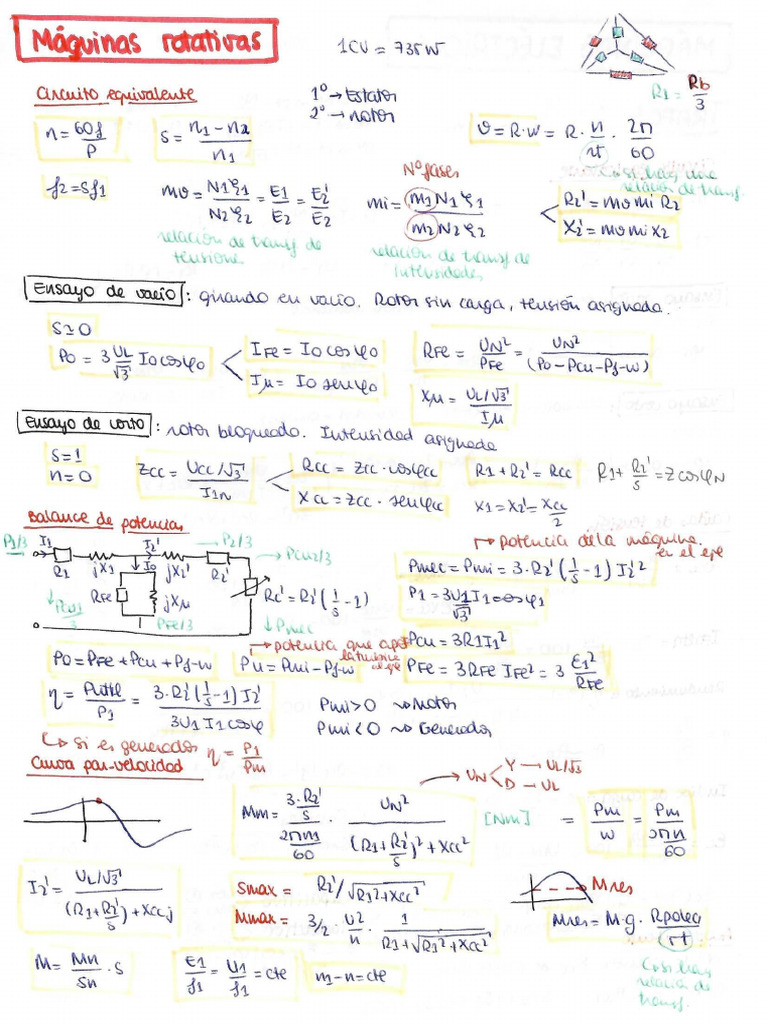 Máquinas rotativas
1CV = 735W
R1 = Rb/3
Circuito equivalente
1º → Estator
2º → rotor
n = 60f/P
s = (n1 - n2)/n1
v = R·w = R · n/rt · 2π/60
→ si hay due
relación de transf.
f2 = Sf1
mv = N1ξ1/N2ξ2 = E1/E2 = E2'/E2
relación de transf de
tensione
Nº fases
mi = m1N1ξ1/m2N2ξ2
relación de transf de
intensidades
R2' = mv mi R2
X2' = mv mi X2
Ensayo de vacío : girando en vacío. Rotor sin carga, tensión asignada.
S ≃ 0
P0 = 3 UL/√3 I0 cosφ0
IFE = I0 cosφ0
Iμ = I0 senφ0
RFE = UN²/PFE = UN²/(P0 - Pcu - Pf-w)
Xμ = UL/√3/Iμ
Ensayo de corto : rotor bloqueado. Intensidad asignada
S = 1
n = 0
Zcc = Ucc/√3/I1n
Rcc = Zcc · cosφcc
Xcc = Zcc · senφcc
R1 + R2' = Rcc
X1 = X2' = Xcc/2
R1 + R2'/s = Z cosφN
Balance de potencias
P1/3
I1
I2'
→ P2/3
→ Pcu2/3
R1
jX1
I0
jX2'
R2'
RFE
jXμ
Pcu1/3
PFE/3
Rc' = R2'(1/s - 1)
↓ Pmec
→ potencia de la máquina
en el eje
Pmec = Pmi = 3·R2'(1/s - 1) I2'²
P1 = 3U1/√3 I1 cosφ1
Pcu = 3R1I1²
PFE = 3RFE IFE² = 3 E1²/RFE
P0 = PFE + Pcu + Pf-w
→ potencia que
Pu = Pmi - Pf-w
η = Pútil/P1 = 3·R2'(1/s - 1) I2'/3U1 I1 cosφ
Pmi > 0 ⇝ Motor
Pmi < 0 ⇝ Generador
↳ si es generador η = P1/Pm
Curva par-velocidad
→ UN
Y → UL/√3
D → UL
Mm = 3·R2'/s/2πn1/60 · UN²/(R1 + R2'/s)² + Xcc²
[Nm]
= Pm/w = Pm/2πn/60
I2' = UL/√3/(R1 + R2'/s) + Xccj
Smax = R2'/√R1² + Xcc²
Mmax = 3/2 U2/n · 1/R1 + √R1² + Xcc²
Mres
Mres = M·g · Rpolea/rt
si hay
relación de
transf.
M = Mn/Sn · S
E1/f1 = U1/f1 = cte
n1 - n = cte